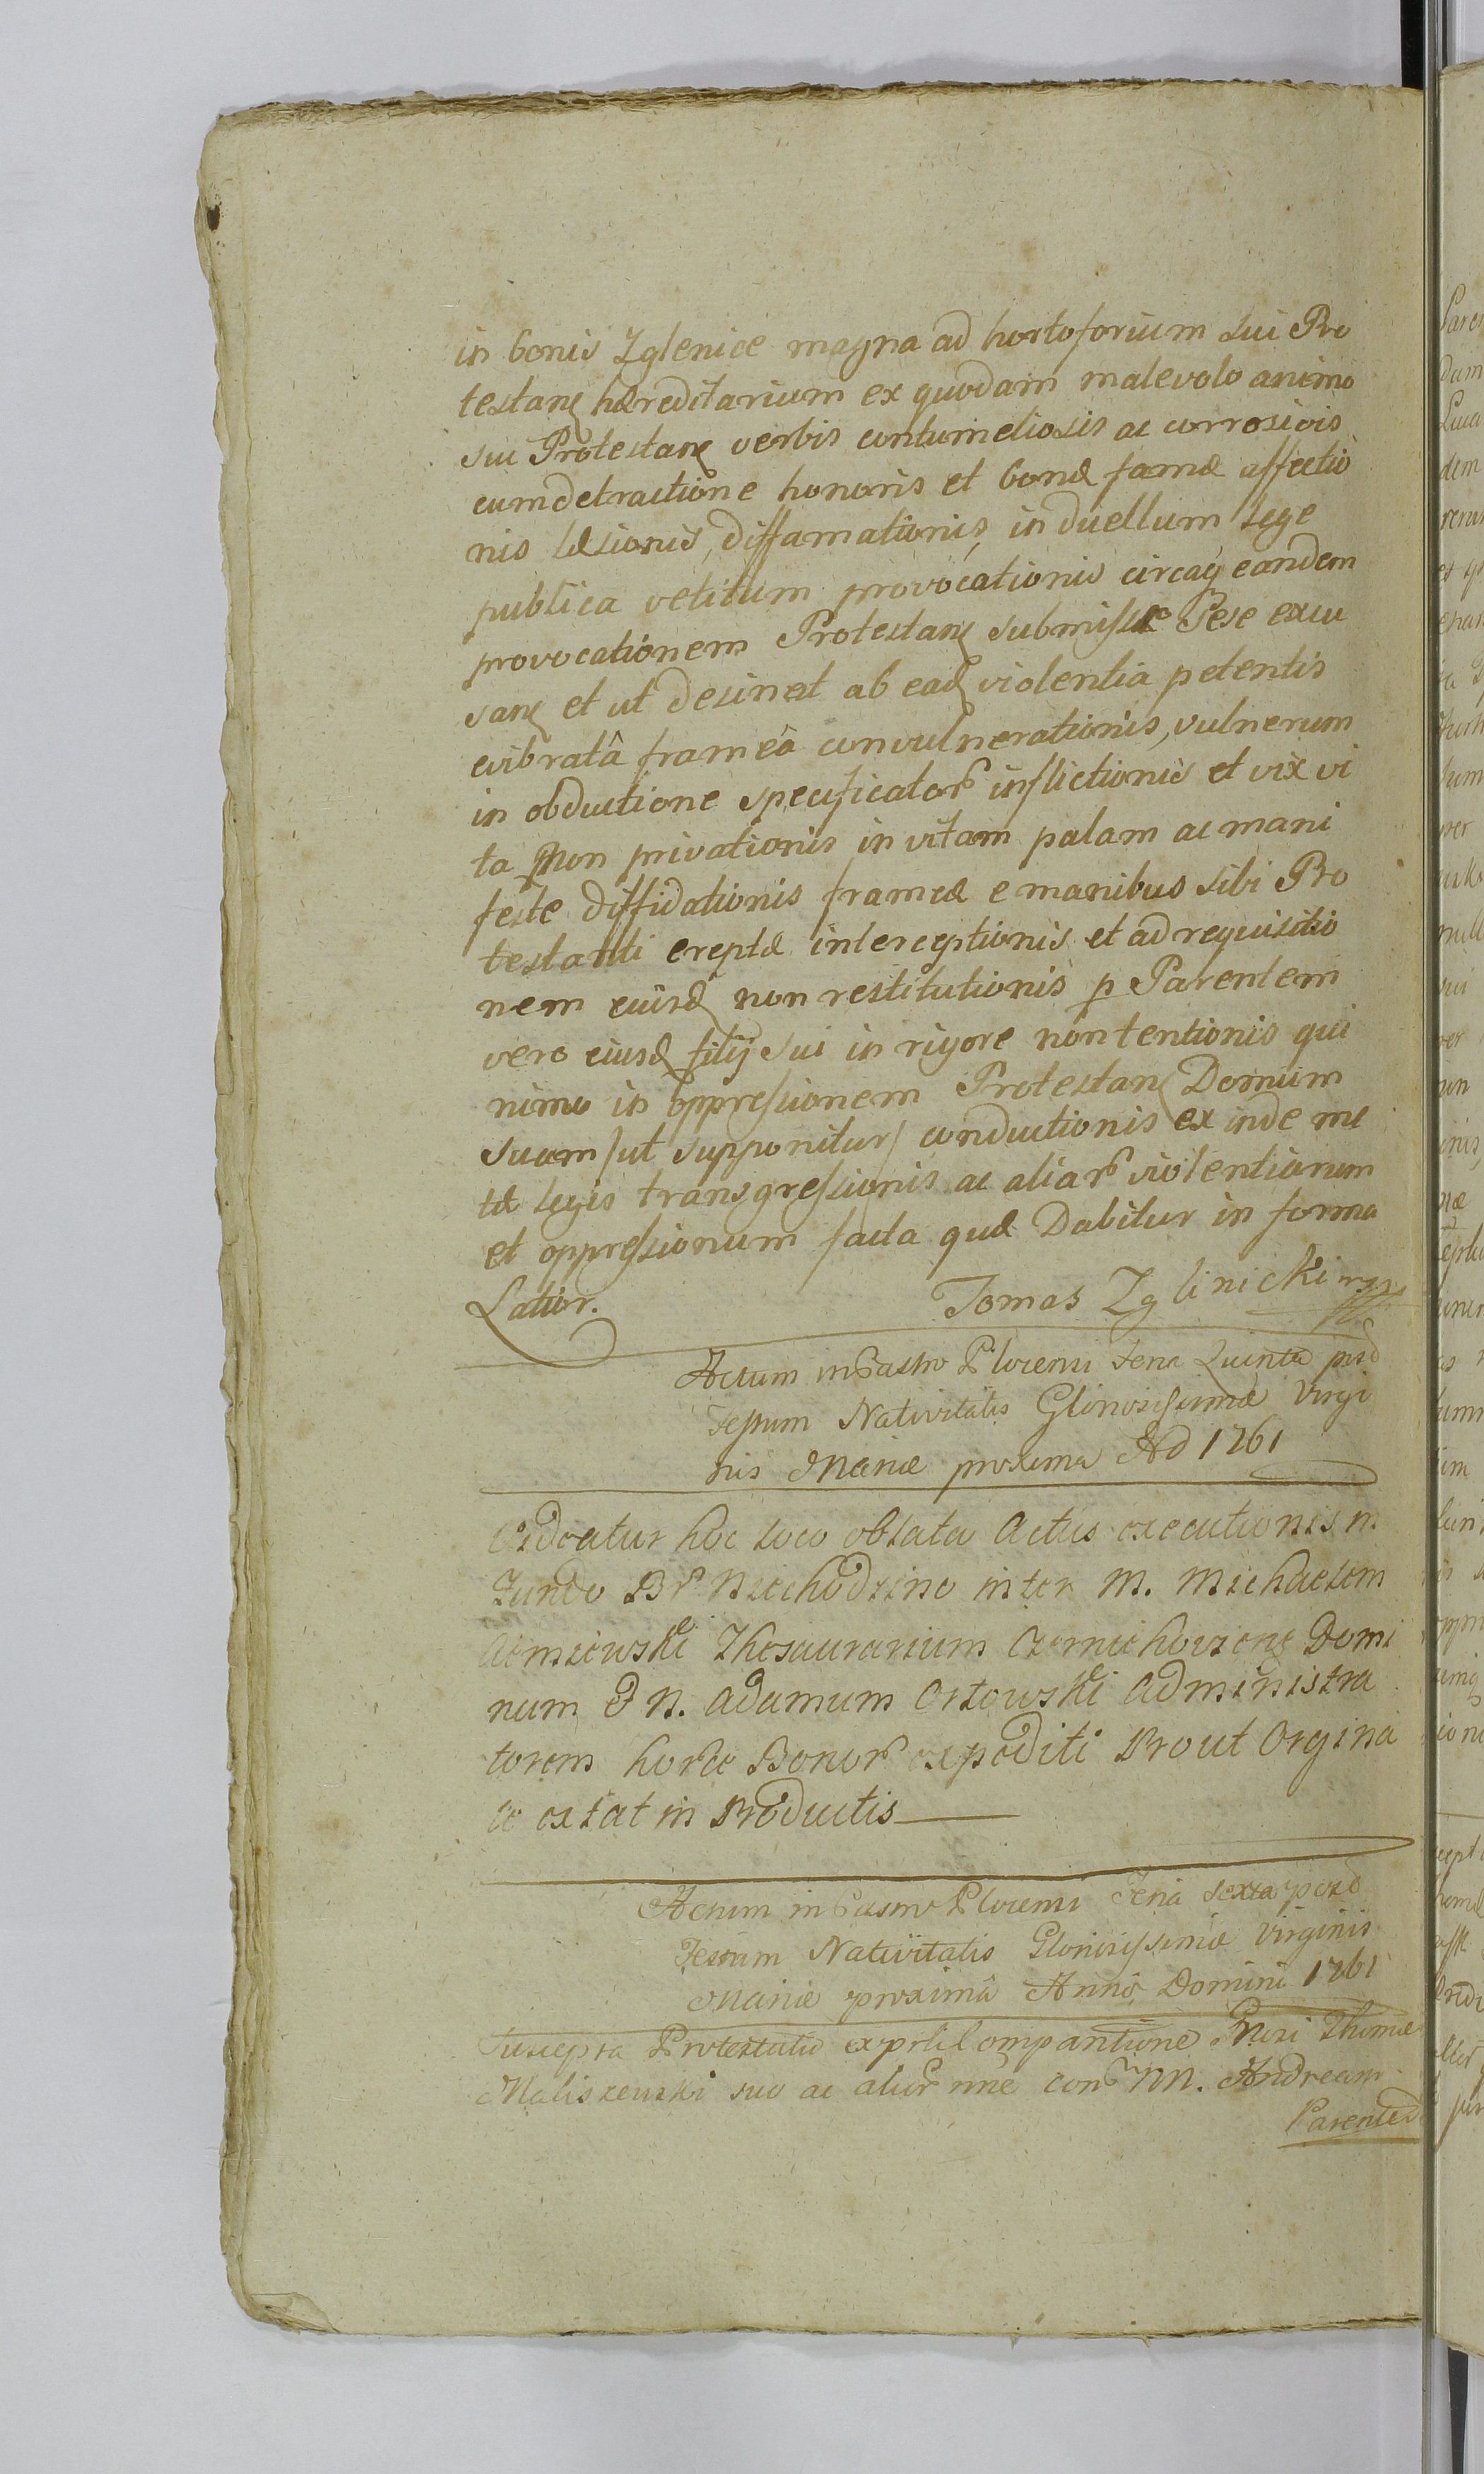 in bonis Zglenice magna ad hortoforium sui Pro
testanę hæreditarium ex quodam malevolo animo
sui Protestanę verbis contumeliosis ac corrosivis
cum detractione honoris et bonæ famæ affectio
nis læsionis, diffamationis, in duellum lege
publica vetitum provocationis circaq̃ eandem
provocationem Protestanę submisse sese excu
sanę et ut desinat ab eadę violentia petentis
evibratâ frameâ convulnerationis, vulnerum
in obductione specificatoŕ inflictionis et vix vi
ta non privationis in vitam palam ac mani
feste diffidationis frameæ e manibus sibi Pro
testanti ereptæ interceptionis et ad requisitio
nem eiusdę non restitutionis p Parentem
vero eiusdę filij sui in rigore non tentionis qui
nimo in oppressionem Protestanę Domum
suam /ut supponitur/ conductionis ex inde me
tæ legis transgressionis ac aliaŕ violentiarum
et oppressionum facta quæ Dabitur in forma
Latior. Tomas Zglinicki mpp
Actum in Castro Plocensi Feria Quinta post
Festum Nativitatis Gloriosissimæ Virgi
nis Mariæ proxima AD 1761
Videatur hoc loco oblata Actus executionis in
Fundo Br̃ Niechodzino inter M. Michaelem
Thesaurarium Czerniechoviensę Domi
num & N. Adamum Ostowski Administra
torem horce Bonoŕ expediti Prout Orgina
le extat in Productis
Actum in Castro Plocensi Feria Sexta post
Festum Nativitatis Gloriosissimæ Virginis
Mariæ proximâ Anno Domini 1761
Suscepta Protestatio
Maliszewski suo ac alioŕ nñe conŕ M. Andream
Parentem